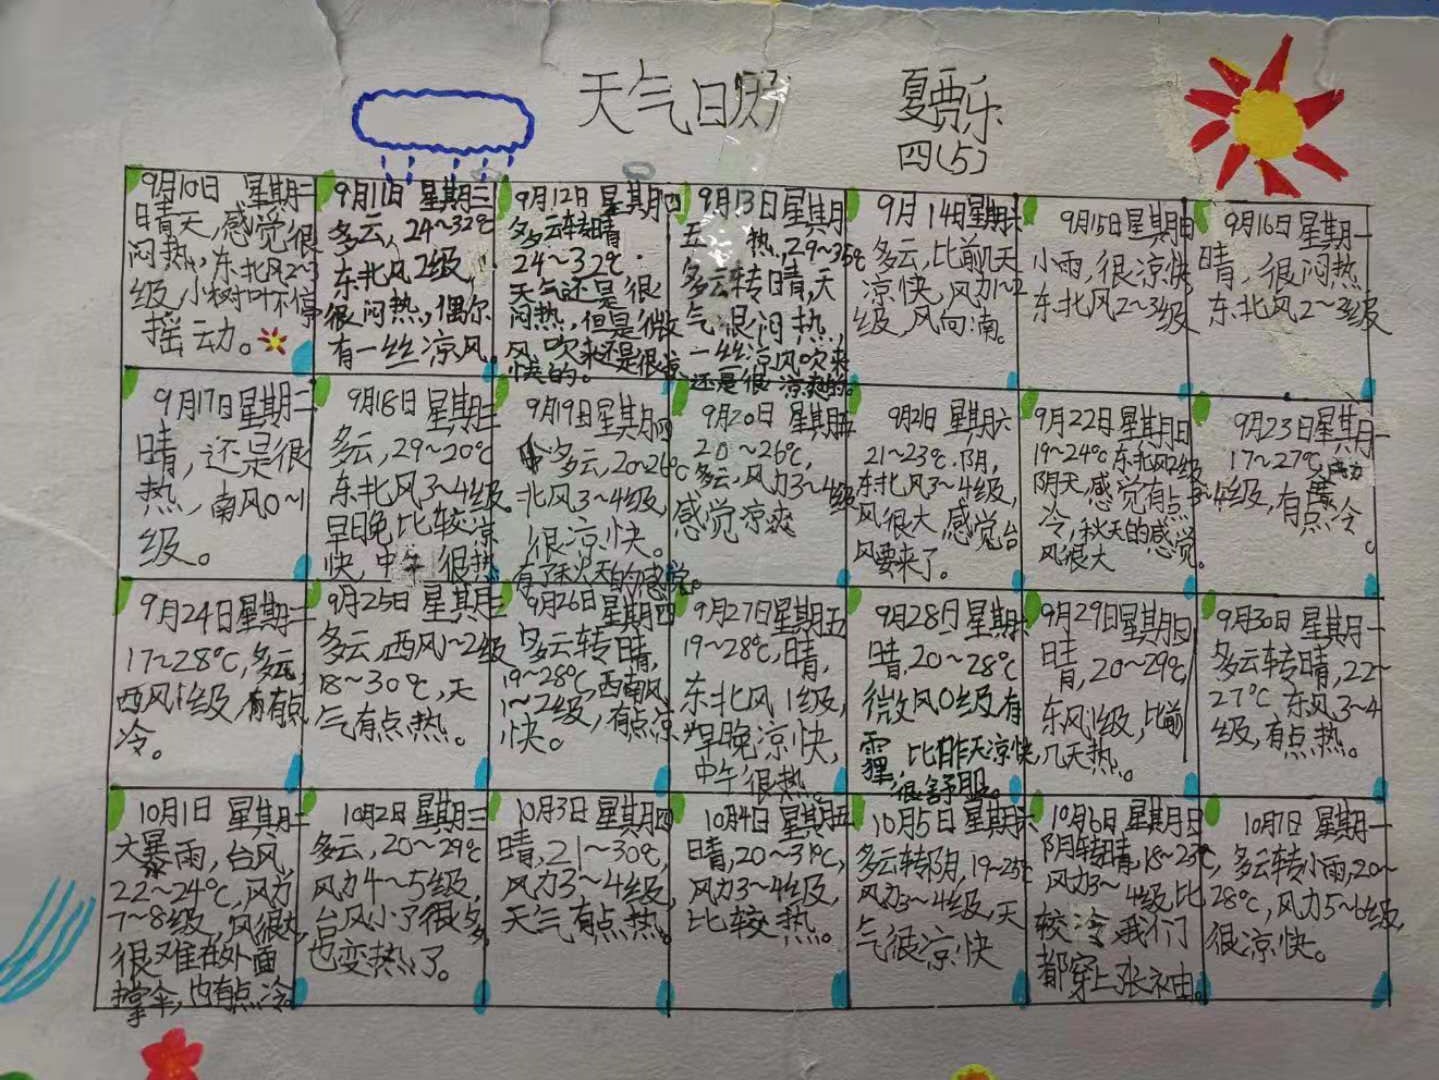 天气日历
夏贾乐
四(5)
9月10日 星期二
晴天,感觉很
闷热,东北风2~3
级,小树叶不停
摇动。
9月11日 星期三
多云,24~32℃
东北风2级,
很闷热,偶尔
有一丝凉风。
9月12日 星期四
多云转晴
24~32℃.
天气还是很
闷热,但是微
风吹来还是很凉
快的。
9月13日星期
五 热,29~35℃
多云转晴,天
气很闷热,
一丝凉风吹来
还是很凉爽的。
9月14日星期六
多云,比前几天
凉快,风力1~2
级,风向南。
9月15日星期日
小雨,很凉快,
东北风2~3级
9月16日星期一
晴,很闷热
东北风2~3级
9月17日星期二
晴,还是很
热,南风0~1
级。
9月18日星期三
多云,29~20℃
东北风3~4级。
早晚比较凉
快,中午很热
9月19日星期四
多云,20~26℃
北风3~4级,
很凉快。
有了秋天的感觉。
9月20日 星期五
20~26℃,
多云,风力3~4级
感觉凉爽
9月21日 星期六
21~23℃.阴,
东北风3~4级,
风很大,感觉台
风要来了。
9月22日星期日
19~24℃东北风2级
阴天,感觉有点
冷,秋天的感觉。
风很大
9月23日星期一
17~27℃ 风力
3~4级,有点冷。
9月24日星期二
17~28℃,多云,
西风1级,有点
冷。
9月25日 星期三
多云,西风~2级
18~30℃,天
气有点热。
9月26日星期四
多云转晴,
19~28℃西南风
1~2级,有点凉
快。
9月27日星期五
19~28℃,晴,
东北风1级,
早晚凉快,
中午很热。
9月28日星期六
晴,20~28℃
微风0级有
霾,比昨天凉快,
很舒服。
9月29日星期日
晴,20~29℃,
东风1级,比前
几天热。
9月30日 星期一
多云转晴,22~
27℃,东风3~4
级,有点热。
10月1日 星期二
大暴雨,台风,
22~24℃,风力
7~8级,风很大,
很难在外面
撑伞,有点冷。
10月2日 星期三
多云,20~29℃
风力4~5级,
台风小了很多,
也变热了。
10月3日 星期四
晴,21~30℃,
风力3~4级,
天气有点热。
10月4日 星期五
晴,20~31℃,
风力3~4级,
比较热。
10月5日 星期六
多云转阴,19~25℃
风力3~4级,天
气很凉快
10月6日星期日
阴转晴,18~23℃,
风力3~4级,比
较冷我们
都穿上长袖。
10月7日 星期一
多云转小雨,20~
28℃,风力5~6级,
很凉快。